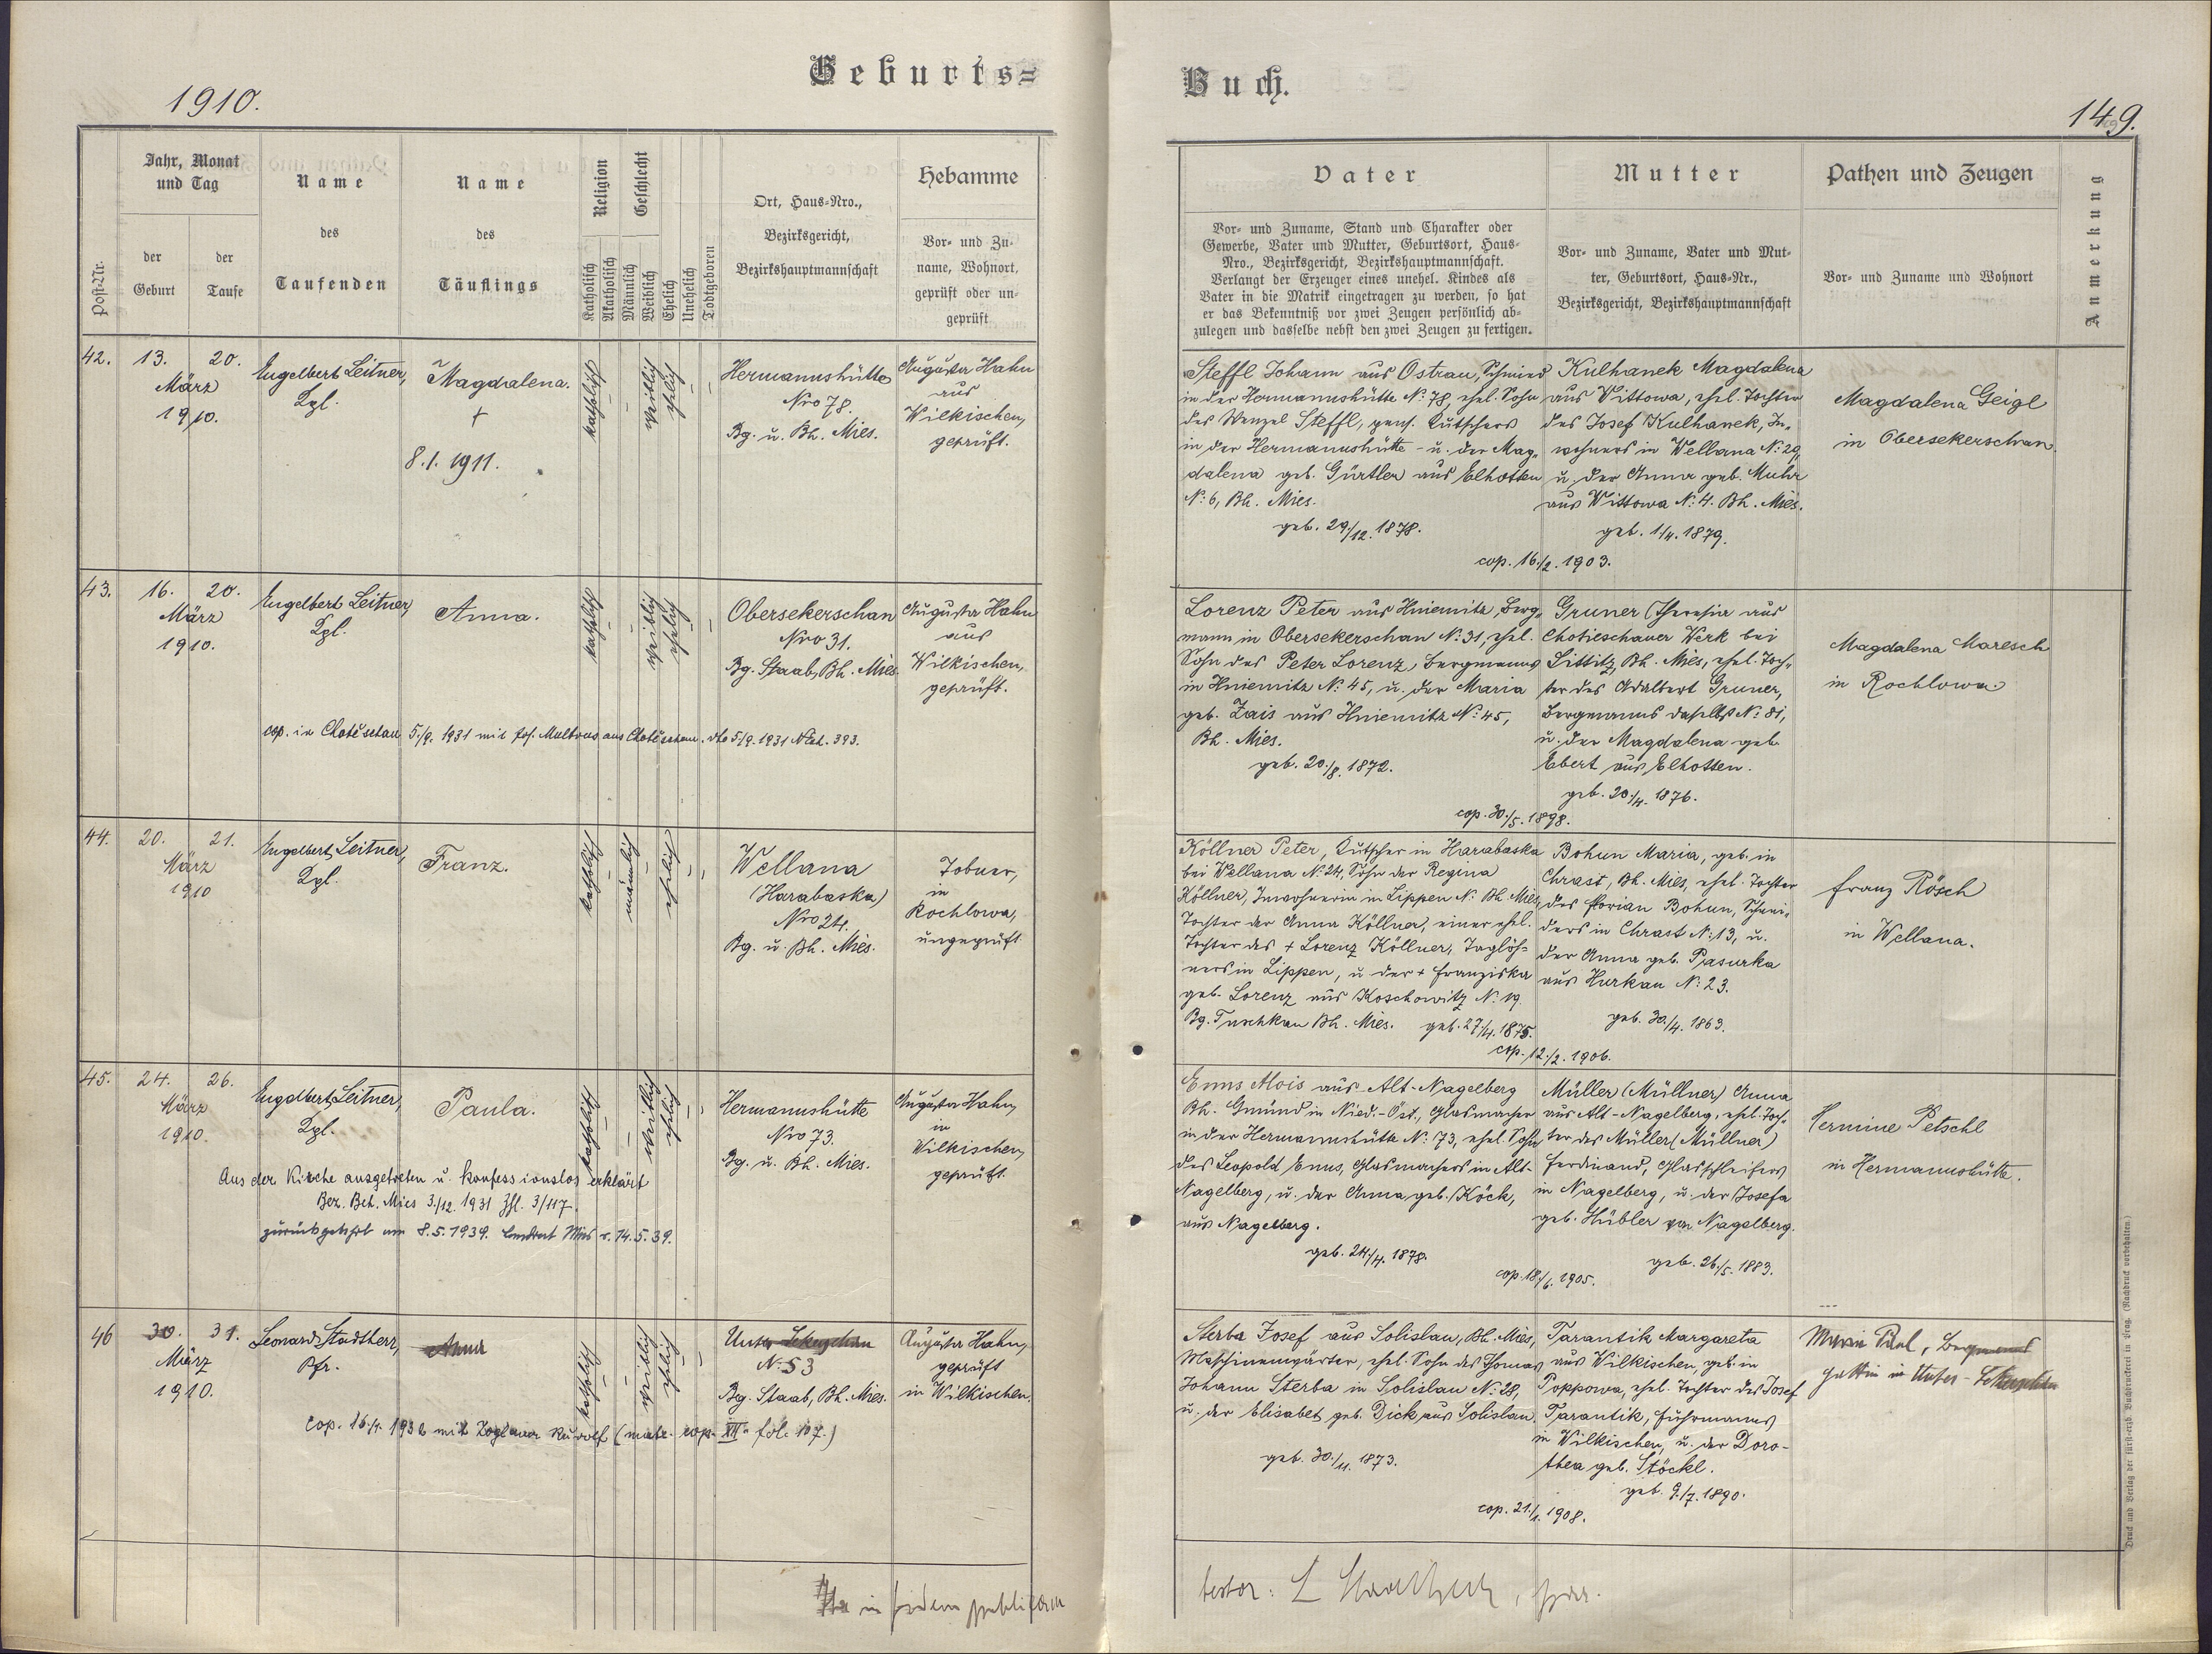 Geburts=
1910.
Post-Nr.
Jahr, Monat
und Tag
der
Geburt
der
Taufe
Name
des
Taufenden
Name
des
Täuflings
Religion
Katholisch
Akatholisch
Geschlecht
Männlich
Weiblich
Ehelich
Unehelich
Todtgeboren
Ort, Haus=Nro.,
Bezirksgericht,
Bezirkshauptmannschaft
Hebamme
Vor= und Zu=
name, Wohnort,
geprüft oder un=
geprüft
42.
13. 20.
März
1910.
Engelbert Leitner,
Lgl.
Magdalena.
+
8.1.1911.
katholisch
-
-
weiblich
ehelich
-
-
Hermannshütte
Nro 78.
Bg. u. Bh. Mies.
Augusta Hahn
aus
Wilkischen,
geprüft.
43.
16. 20.
März
1910.
Engelbert Leitner,
Lgl.
Anna.
katholisch
-
-
weiblich
ehelich
-
-
Obersekerschan
Nro 31.
Bg. Staab, Bh. Mies.
Augusta Hahn
aus
Wilkischen,
geprüft.
cop. in Chotěschau 5./9. 1931 mit Jos. aus Chotěschau. dto 5/9. 1931 393.
44.
20. 21.
März
1910
Engelbert Leitner,
Lgl.
Franz.
katholisch
-
männlich
-
ehelich
-
-
Wellana
(Harabaska)
Nro 24.
Bg. u. Bh. Mies.
Tobner,
in
Rochlowa,
ungeprüft
45.
24. 26.
März
1910.
Engelbert Leitner,
Lgl.
Paula.
katholisch
-
-
weiblich
ehelich
-
-
Hermannshütte
Nro 73.
Bg. u. Bh. Mies.
Augusta Hahn,
in
Wilkischen,
geprüft.
Aus der Kirche ausgetreten u. konfessionslos erklärt
Bez. Beh. Mies 3./12. 1931 Zhl. 3/117.
zurückgekehrt am 8.5.1939. Landrat Mies v. 14.5.39.
46
30. 31.
März
1910.
Leonard Stadtherr,
Pfr.
Anna
katholisch
-
-
weiblich
ehelich
-
-
Unter Sekerschan
N: 53
Bg. Staab, Bh. Mies.
Augusta Hahn,
geprüft
in Wilkischen.
cop. 16./4. 1932 mit Zoglauer Rudolf (matr. cop. XII fol. 107.)
in fidem publicam
Buch.
149.
Vater
Vor= und Zuname, Stand und Charakter oder
Gewerbe, Vater und Mutter, Geburtsort, Haus=
Nro., Bezirksgericht, Bezirkshauptmannschaft.
Verlangt der Erzeuger eines unehel. Kindes als
Vater in die Matrik eingetragen zu werden, so hat
er das Bekenntniß vor zwei Zeugen persönlich ab=
zulegen und dasselbe nebst den zwei Zeugen zu fertigen.
Mutter
Vor= und Zuname, Vater und Mut=
ter, Geburtsort, Haus=Nr.,
Bezirksgericht, Bezirkshauptmannschaft
Pathen und Zeugen
Vor= und Zuname und Wohnort
Anmerkung
Steffl Johann aus Ostrau, Schmied
in der Hermannshütte N: 78, ehel. Sohn
des Wenzel Steffl, pens. Kutschers
in der Hermannshütte - u. der Mag=
dalena geb. Gürtler aus Elhotten
N: 6, Bh. Mies.
geb. 29./12. 1878.
Kulhanek Magdalena
aus Wittowa, ehel. Tochter
des Josef Kulhanek, In=
wohners in Wellana N: 29,
u. der Anna geb. Muhr
aus Wittowa N: 4. Bh. Mies.
geb. 1/4. 1879.
cop. 16./2. 1903.
Magdalena Geigl
in Obersekerschan.
Lorenz Peter aus Hniemitz, Berg=
mann in Obersekerschan N: 31, ehel.
Sohn des Peter Lorenz, Bergmanns
in Hniemitz N: 45, u. der Maria
geb. Zais aus Hniemitz N: 45,
Bh. Mies.
geb. 20./8. 1872.
Gruner Theresia aus
Chotieschauer Werk bei
Littitz, Bh. Mies, ehel. Toch=
ter des Adalbert Gruner,
Bergmanns daselbst N: 81,
u. der Magdalena geb.
Ebert aus Elhotten.
geb. 20./4. 1876.
cop. 30./5. 1898.
Magdalena Maresch
in Rochlowa.
Köllner Peter, Kutscher in Harabaska
bei Wellana N: 24, Sohn der Regina
Köllner, Inwohnerin in Lippen N: Bh Mies,
Tochter der Anna Köllner, einer ehel.
Tochter des + Lorenz Köllner, Taglöh=
ners in Lippen, u. der + Franziska
geb. Lorenz aus Koschowitz N: 19.
Bg. Tuschkau Bh. Mies. geb. 27/4. 1875.
Bohun Maria, geb. in
Chrast, Bh. Mies, ehel. Tochter
des Florian Bohun, Schnei=
ders in Chrast N: 13, u.
der Anna geb. Pasurka
aus Hurkau N: 23.
geb. 30./4. 1863.
cop. 12./2. 1906.
Franz Rösch
in Wellana.
Enns Alois aus Alt-Nagelberg
Bh. Gmünd in Nied.-Öst., Glasmacher
in der Hermannshütte N: 73, ehel. Sohn
des Leopold Enns, Glasmachers in Alt-
Nagelberg, u. der Anna geb. Köck,
aus Nagelberg.
geb. 24./4. 1878.
Müller (Müllner) Anna
aus Alt-Nagelberg, ehel. Toch=
ter des Müller (Müllner)
Ferdinand, Glasschleifers
in Nagelberg, u. der Josefa
geb. Hübler von Nagelberg.
geb. 26./5. 1883.
cop. 18./6. 1905.
Hermine Petschl
in Hermannshütte.
Sterba Josef aus Solislau, Bh. Mies,
Maschinenwärter, ehel. Sohn des Thomas
Johann Sterba in Solislau N: 28,
u. der Elisabet geb. Dick aus Solislau.
geb. 30./11. 1873.
Tarantik Margareta
aus Wilkischen, geb. in
Poppowa, ehel. Tochter des Josef
Tarantik, Fuhrmanns
in Wilkischen, u. der Doro-
thea geb. Stöckl.
geb. 9./7. 1890.
cop. 21./1. 1908.
Maria
gattin in Unter-Sekerschan
testor: L Stadtherr, Pfr.
Druck und Verlag der fürst=erzb. Buchdruckerei in Prag. (Nachdruck vorbehalten.)